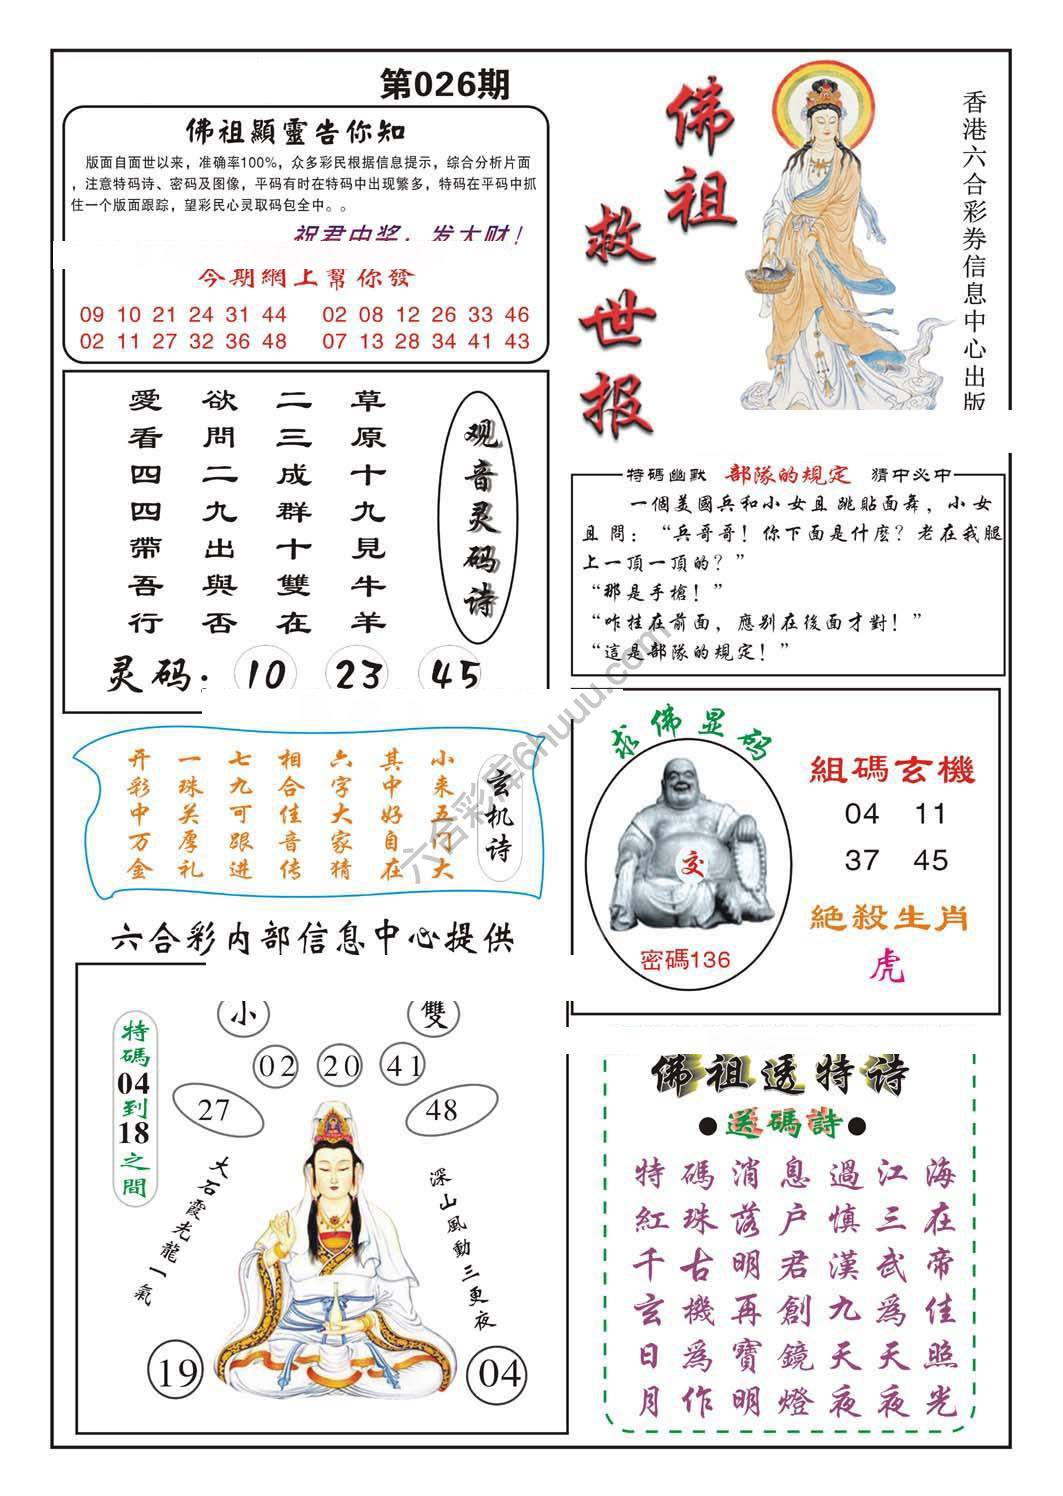 第026期
佛祖顯靈告你知
版面自面世以来，准确率100%，众多彩民根据信息提示，综合分析片面
，注意特码诗、密码及图像，平码有时在特码中出现繁多，特码在平码中抓
住一个版面跟踪，望彩民心灵取码包全中。。
祝君中奖，发大财！
今期網上幫你發
09 10 21 24 31 44 02 08 12 26 33 46
02 11 27 32 36 48 07 13 28 34 41 43
佛祖
救世报
香港六合彩券信息中心出版
观音灵码诗
草原十九見牛羊
二三成群十雙在
欲問二九出與否
愛看四四帶吾行
灵码：10 23 45
特碼幽默 部隊的規定 猜中必中
一個美國兵和小女且跳貼面舞，小女
且問：“兵哥哥！你下面是什麼？老在我腿
上一頂一頂的？”
“那是手槍！”
“咋挂在前面，應别在後面才對！”
“這是部隊的規定！”
玄机诗
小来五行大
其中好自在
六字大家猜
相合佳音传
七九可跟进
一珠关厚礼
开彩中万金
六合彩内部信息中心提供
求佛显码
交
密碼136
組碼玄機
04 11
37 45
絕殺生肖
虎
特碼04到18之間
小 雙
02 20 41
27 48
大石霞光龍一氣
深山風動三更夜
19 04
佛祖透特诗
●送碼詩●
特碼消息過江海
紅珠落户慎三在
千古明君漢武帝
玄機再創九為佳
日為寶鏡天天照
月作明燈夜夜光
六合彩库6huuu.com